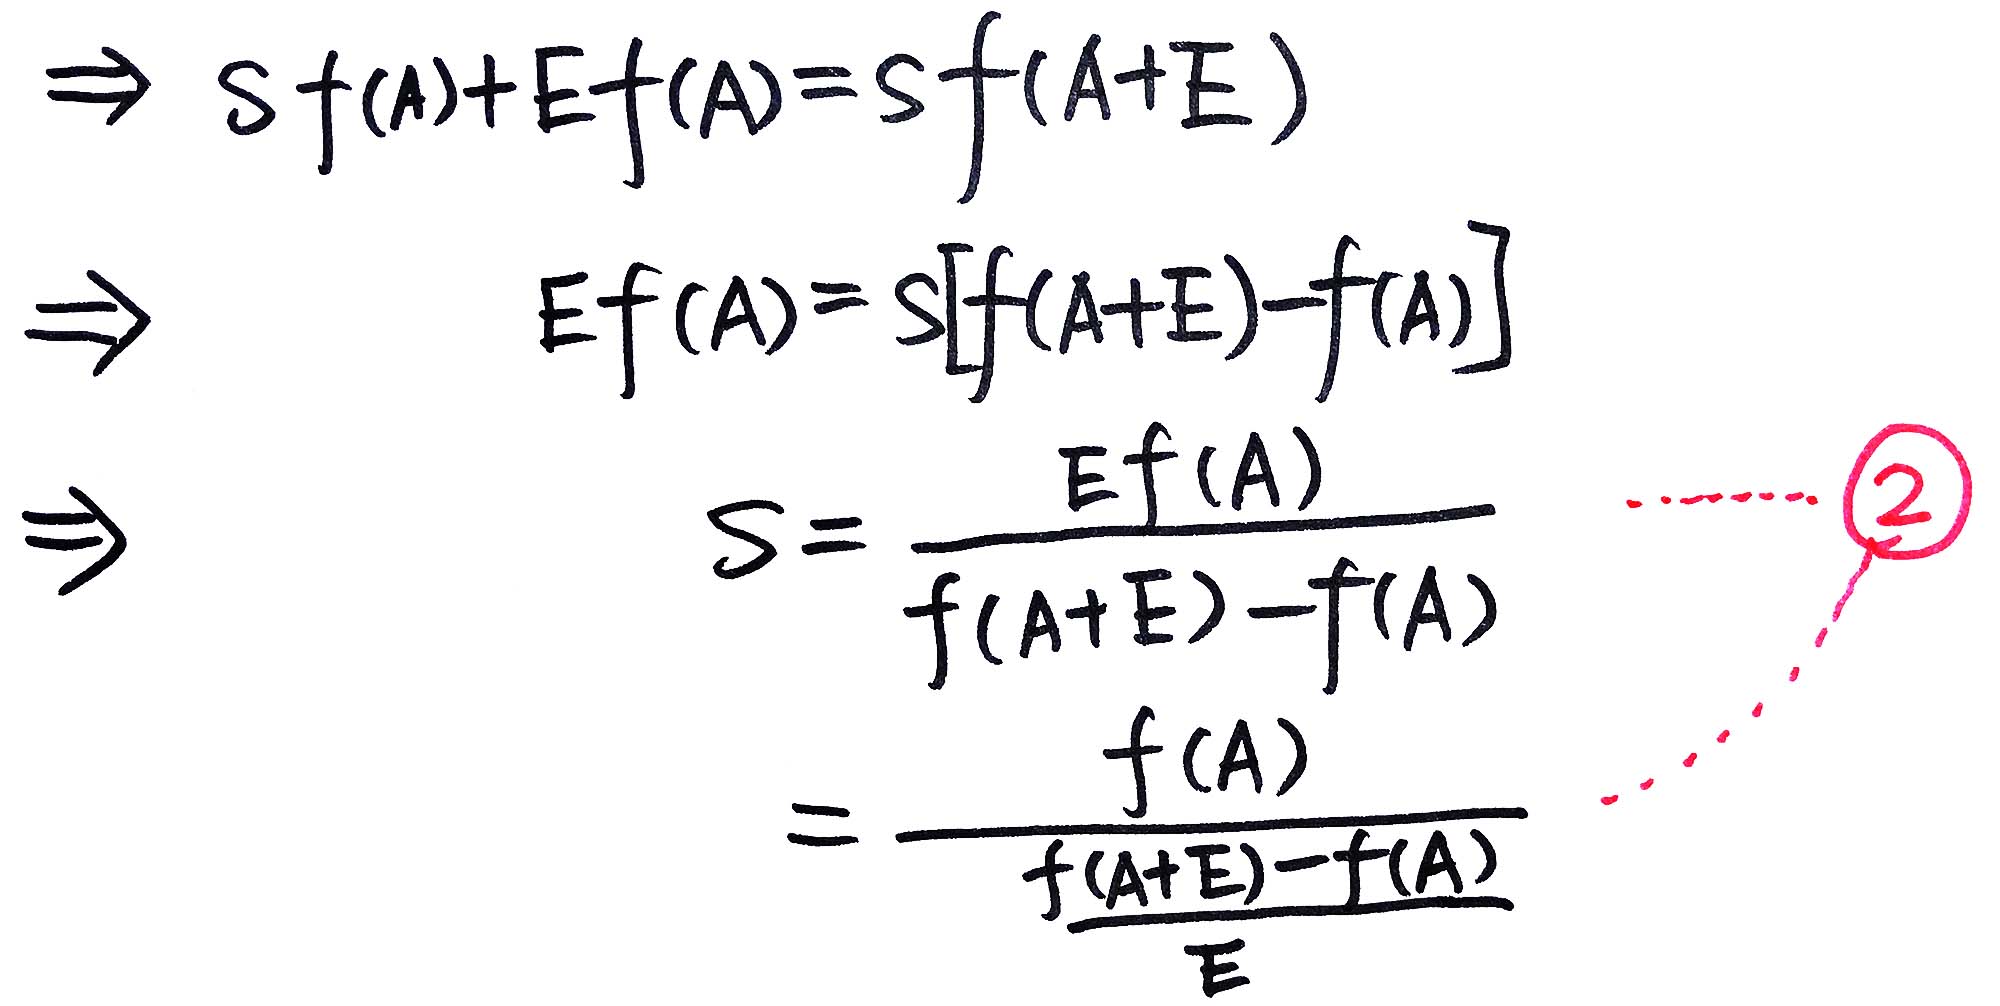 ⇒ S f(A) + E f(A) = S f(A+E)
⇒ E f(A) = S[f(A+E) − f(A)]
⇒ S = \frac{E f(A)}{f(A+E) − f(A)} ------- ②
= \frac{f(A)}{\frac{f(A+E) − f(A)}{E}}